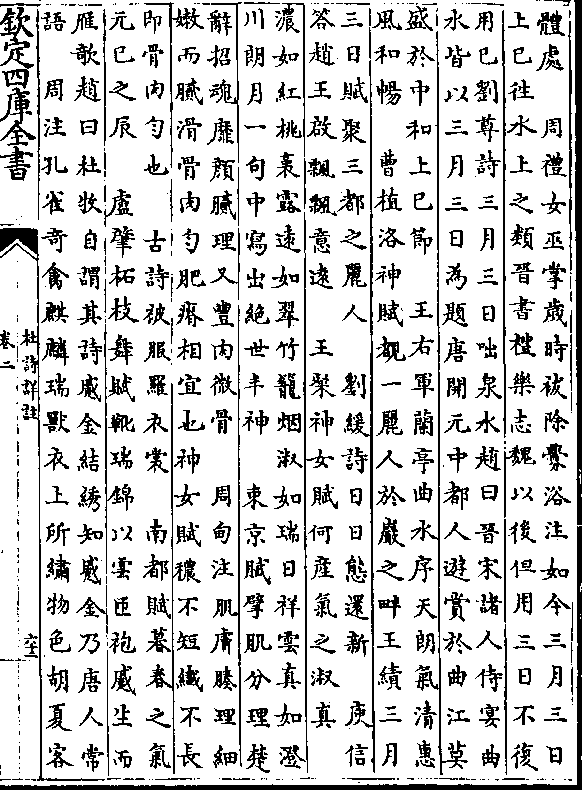 體處　周禮女巫掌歲時祓除釁浴注如今三月三日
上巳徃水上之類晉書禮樂志魏以後但用三日不復
用巳劉尊詩三月三日咄泉水趙曰晉宋諸人侍宴曲
水皆以三月三日為題唐開元中都人遊賞於曲江莫
盛於中和上巳節　王右軍蘭亭曲水序天朗氣清惠
風和暢　曹植洛神賦覩一麗人於巖之畔王績三月
三日賦聚三都之麗人　劉緩詩日日態還新　庾信
答趙王啟飄飄意遠　王粲神女賦何產氣之淑真
濃如紅桃裛露遠如翠竹籠烟淑如瑞日祥雲真如澄
川朗月一句中寫出絶世丰神　東京賦擘肌分理楚
辭招魂靡顔膩理又豐肉微骨　周甸注肌膚膝理細
嫩而膩滑骨肉勻肥瘠相宜也神女賦穠不短纎不長
即骨肉勻也　古詩被服羅衣裳　南都賦暮春之氣
元巳之辰　盧肇柘枝舞賦靴瑞錦以雲匝袍蹙金而
雁欹趙曰杜牧自謂其詩蹙金結綉知蹙金乃唐人常
語　周注孔雀奇禽麒麟瑞獸衣上所繡物色胡夏客
欽定四庫全書
杜詩詳註
卷二
六十三